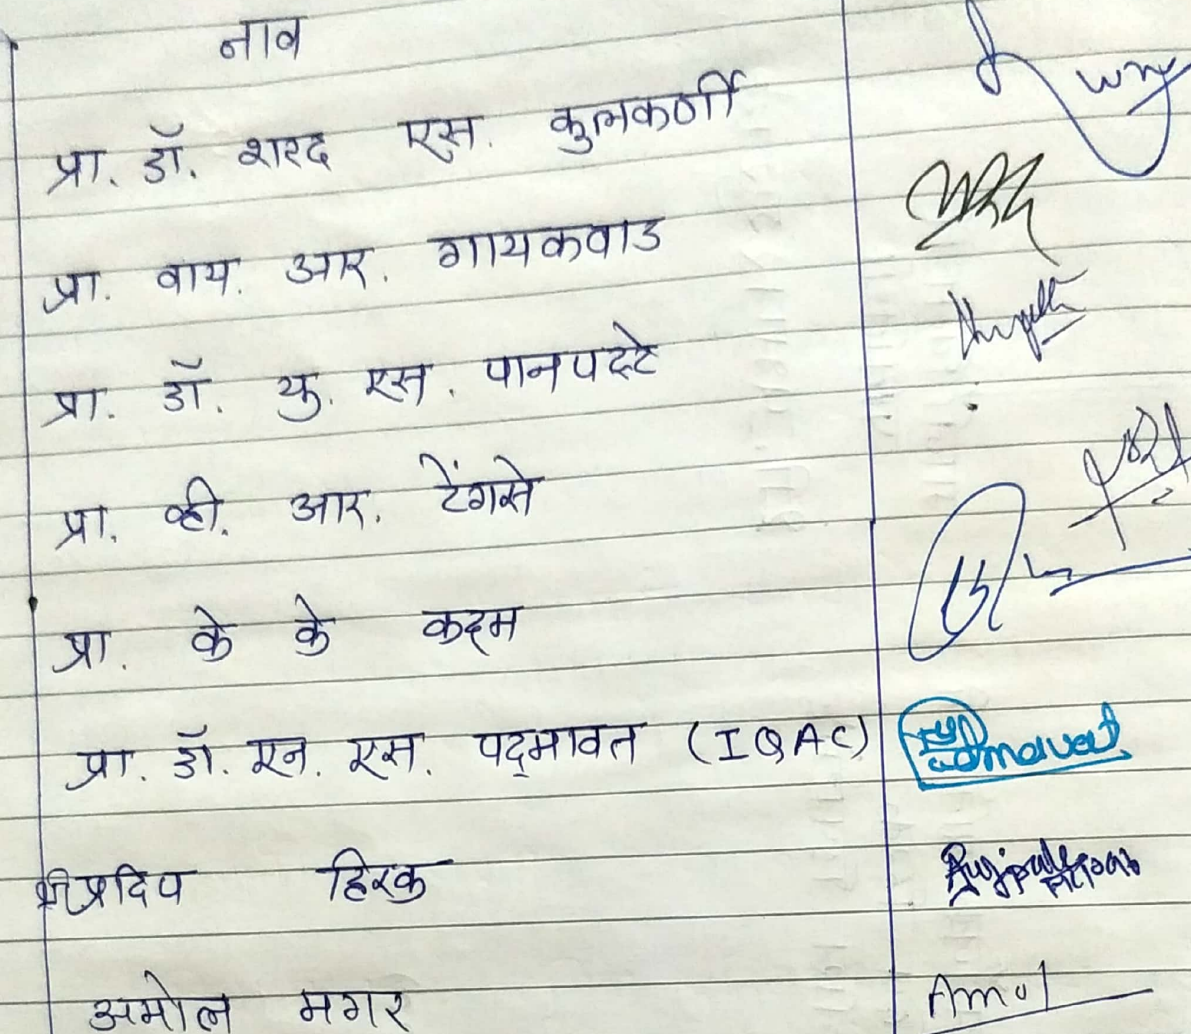 नाव
प्रा. डॉ. शरद एस. कुलकर्णी
प्रा. वाय. आर. गायकवाड
प्रा. डॉ. यु. एस. पानपट्टे
प्रा. व्ही. आर. टेंगसे
प्रा. के के कदम
प्रा. डॉ. एन. एस. पद्मावत (IQAC)
श्री प्रदिप हिरक
अमोल मगर Amol